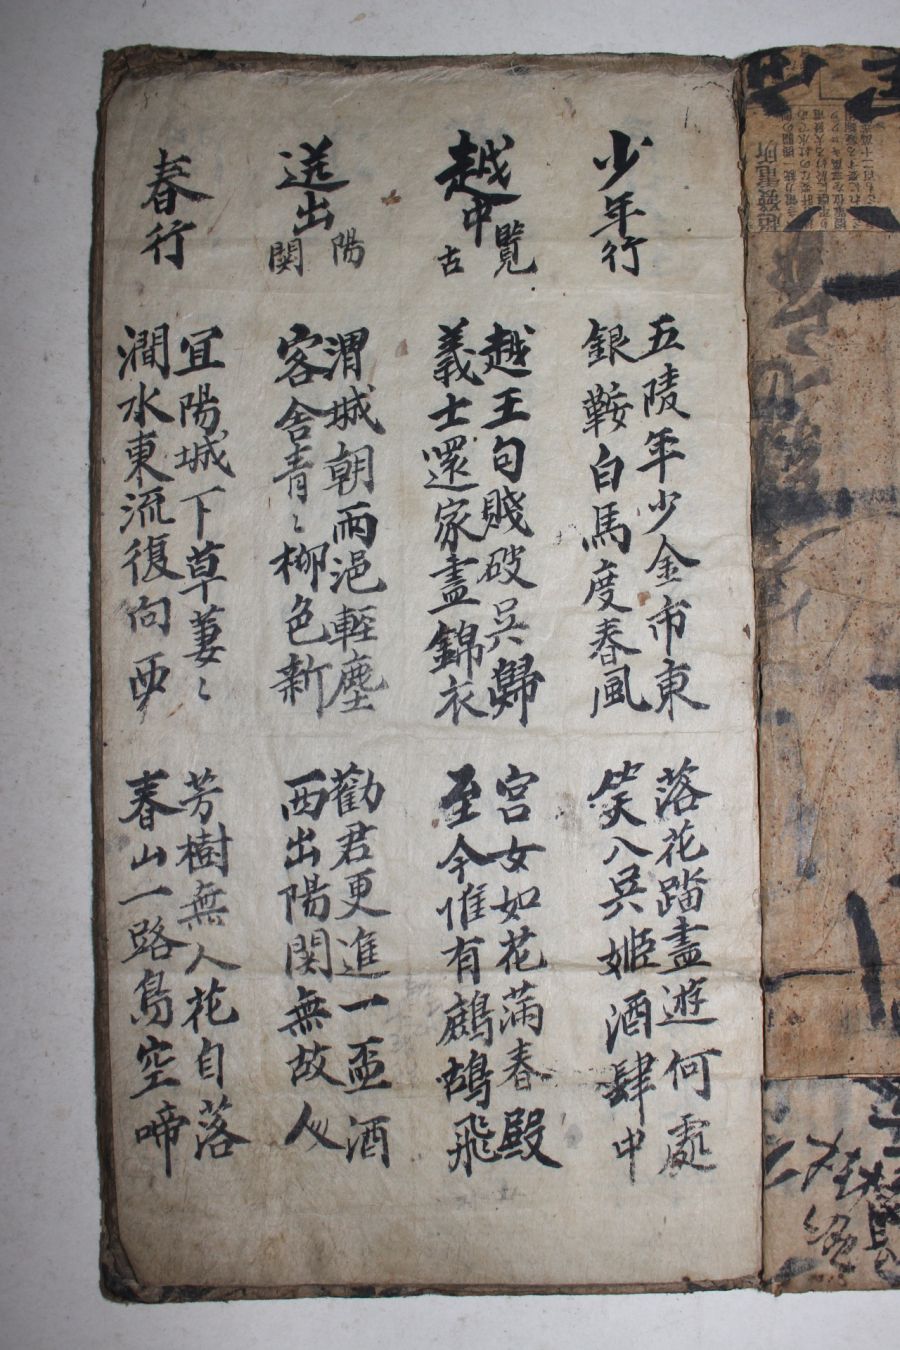 少年行
五陵年少金市東
銀鞍白馬度春風
落花踏盡遊何處
笑入吳姬酒肆中
越中覽古
越王句賤破吳歸
義士還家盡錦衣
宮女如花滿春殿
至今惟有鷓鴣飛
送出陽関
渭城朝雨浥輕塵
客舍青〻柳色新
勸君更進一盃酒
西出陽関無故人
春行
宜陽城下草萋〻
澗水東流復向西
芳樹無人花自落
春山一路鳥空啼